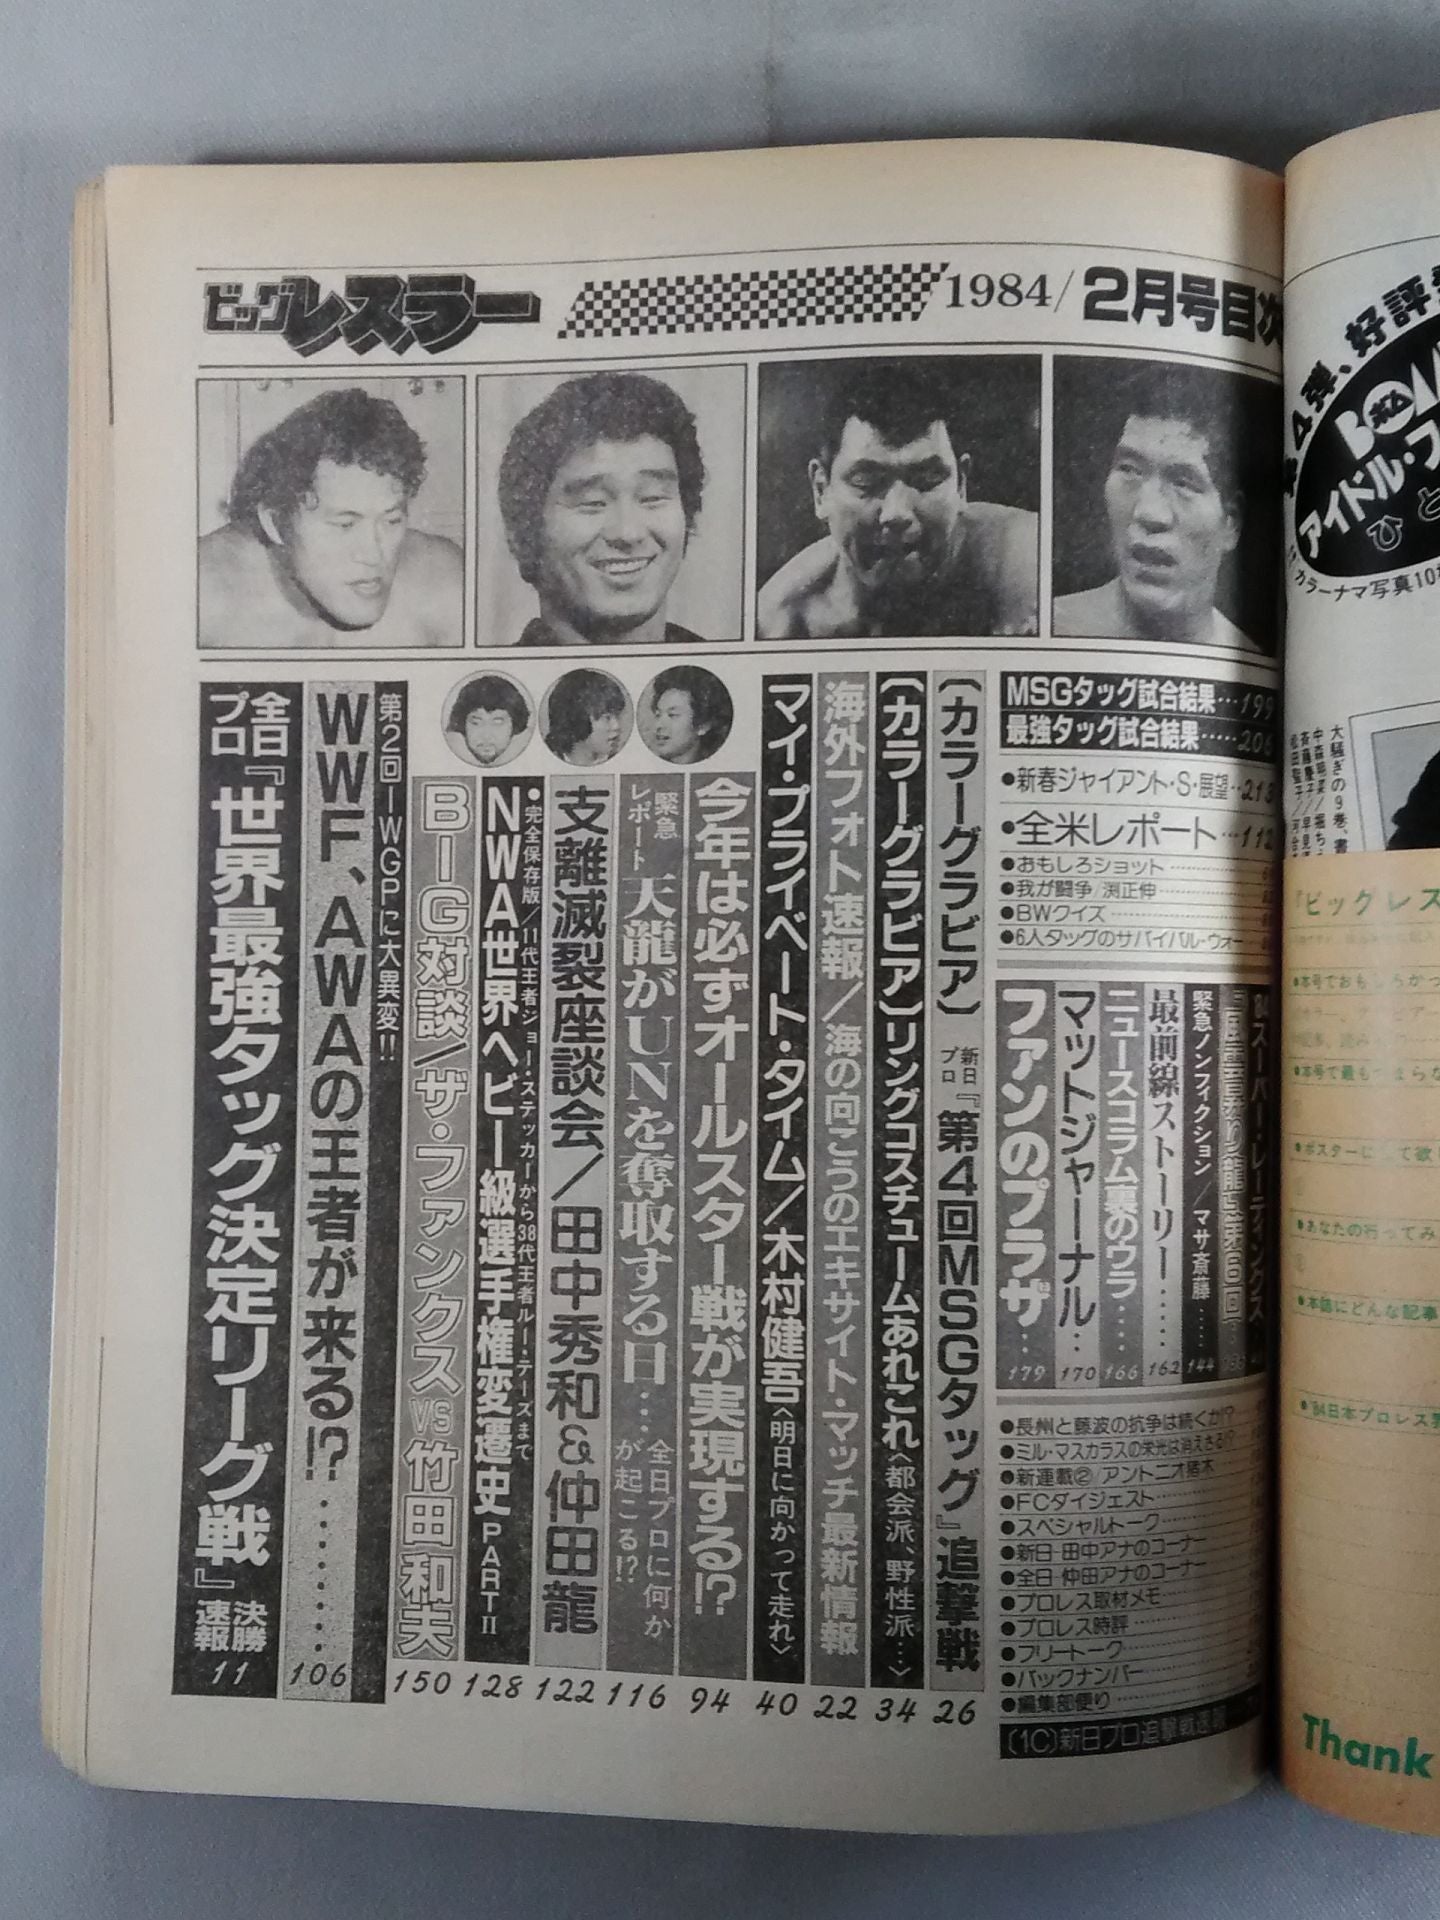 ビッグレスラー
1984/2月号目次
MSGタッグ試合結果…199
最強タッグ試合結果……206
●新春ジャイアント・S・展望…213
●全米レポート…112
●おもしろショット
●我が闘争/渕正伸
●BWクイズ
●6人タッグのサバイバル・ウォー
'84スーパー・レーティングス
『風雲昇り龍』第6回…
緊急ノンフィクション/マサ斎藤……144
最前線ストーリー……162
ニュースコラム裏のウラ……166
マットジャーナル…170
ファンのプラザ…179
●長州と藤波の抗争は続くか!?
●ミル・マスカラスの栄光は消えさる!?
●新連載②/アントニオ猪木
●FCダイジェスト
●スペシャルトーク
●新日-田中アナのコーナー
●全日-仲田アナのコーナー
●プロレス取材メモ
●プロレス時評
●フリートーク
●バックナンバー
●編集部便り
〔1C〕新日プロ追撃戦速報
〔カラーグラビア〕新日プロ『第4回MSGタッグ』追撃戦 26
〔カラーグラビア〕リングコスチュームあれこれ〈都会派、野性派…〉 34
海外フォト速報/海の向こうのエキサイト・マッチ最新情報 22
マイ・プライベート・タイム/木村健吾〈明日に向かって走れ〉 40
今年は必ずオールスター戦が実現する!? 94
緊急レポート 天龍がUNを奪取する日…全日プロに何かが起こる!? 116
支離滅裂座談会/田中秀和&仲田龍 122
●完全保存版/11代王者ジョー・ステッカーから38代王者ルー・テーズまで
NWA世界ヘビー級選手権変遷史PARTⅡ 128
BIG対談/ザ・ファンクスVS竹田和夫 150
第2回IWGPに大異変!!
WWF、AWAの王者が来る!?……106
全日プロ『世界最強タッグ決定リーグ戦』決勝速報 11
第4弾、好評
アイドル・
ひと
カラーナマ写真10
大騒ぎの9巻、書
『ビッグレス
●本号でおもしろかっ
●本号で最もつまらな
●ポスターにして欲し
●あなたの行ってみ
●本誌にどんな記事
●'84日本プロレス界
Thank